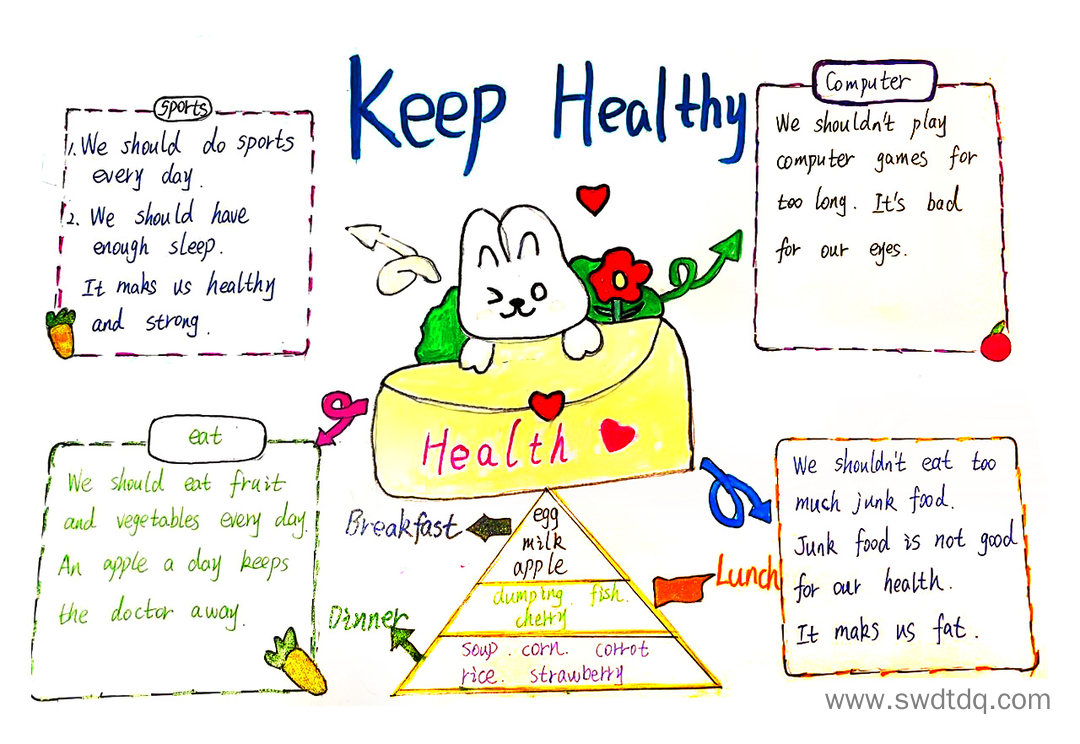 Keep Healthy
sports
1. We should do sports
every day.
2. We should have
enough sleep.
It maks us healthy
and strong.
Computer
We shouldn't play
computer games for
too long. It's bad
for our eyes.
Health
eat
We should eat fruit
and vegetables every day.
An apple a day keeps
the doctor away.
Breakfast
egg
milk
apple
Lunch
dumping. fish.
cherry
Dinner
soup. corn. corrot
rice. strawberry
We shouldn't eat too
much junk food.
Junk food is not good
for our health.
It maks us fat.
www.swdtdq.com